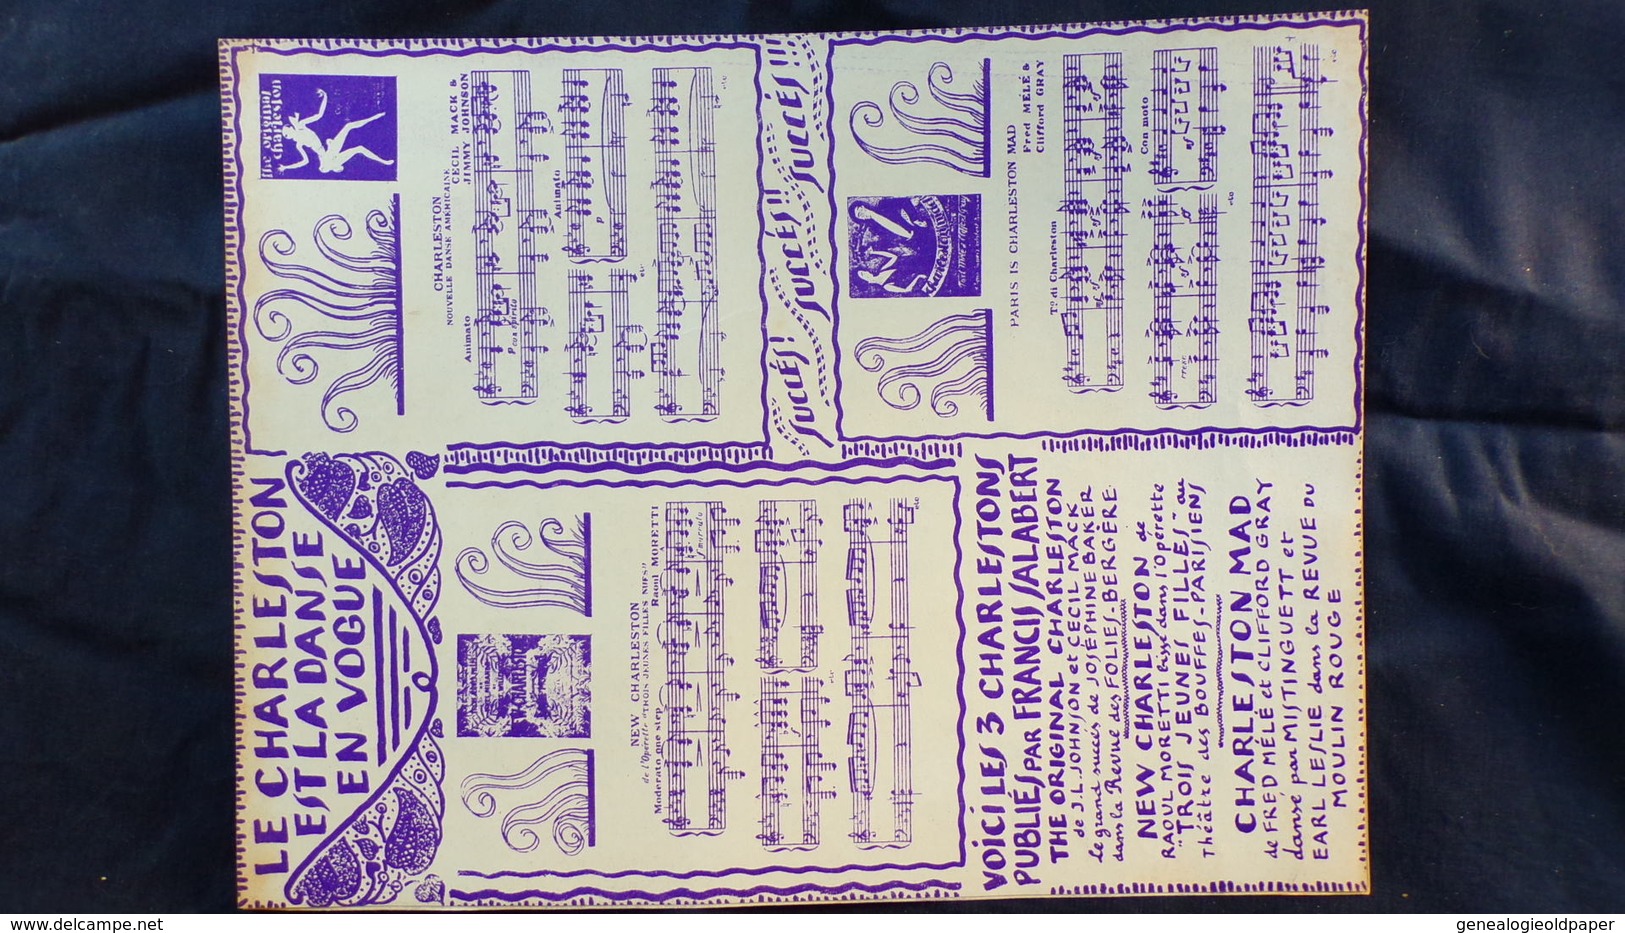 LE CHARLESTON
EST LA DANSE
EN VOGUE
the original
charleston
CHARLESTON
NOUVELLE DANSE AMÉRICAINE
CECIL MACK &
JIMMY JOHNSON
Animato
P con spirito
Animato
P
etc
etc
NEW CHARLESTON
de l'Opérette "TROIS JEUNES FILLES NUES"
Raoul MORETTI
Moderato one step
etc
etc
SUCCÉS! SUCCÉS!! SUCCÉS!!!
PARIS IS CHARLESTON MAD
Fred MÉLÉ &
Clifford GRAY
Tº di Charleston
Con moto
cresc
etc
etc
VOICI LES 3 CHARLESTONS
PUBLIÉS PAR FRANCIS SALABERT
THE ORIGINAL CHARLESTON
de J.L. JOHNSON et CECIL MACK
le grand succés de JOSÉPHINE BAKER
dans la Revue des FOLIES-BERGÈRE.
NEW CHARLESTON de
RAOUL MORETTI bissé dans l'opérette
"TROIS JEUNES FILLES" au
Théâtre des BOUFFES-PARISIENS
CHARLESTON MAD
de FRED MÉLÉ et CLIFFORD GRAY
dansé par MISTINGUETT et
EARL LESLIE dans la REVUE DU
MOULIN ROUGE
https://www.delcampe.net
genealogieoldpaper